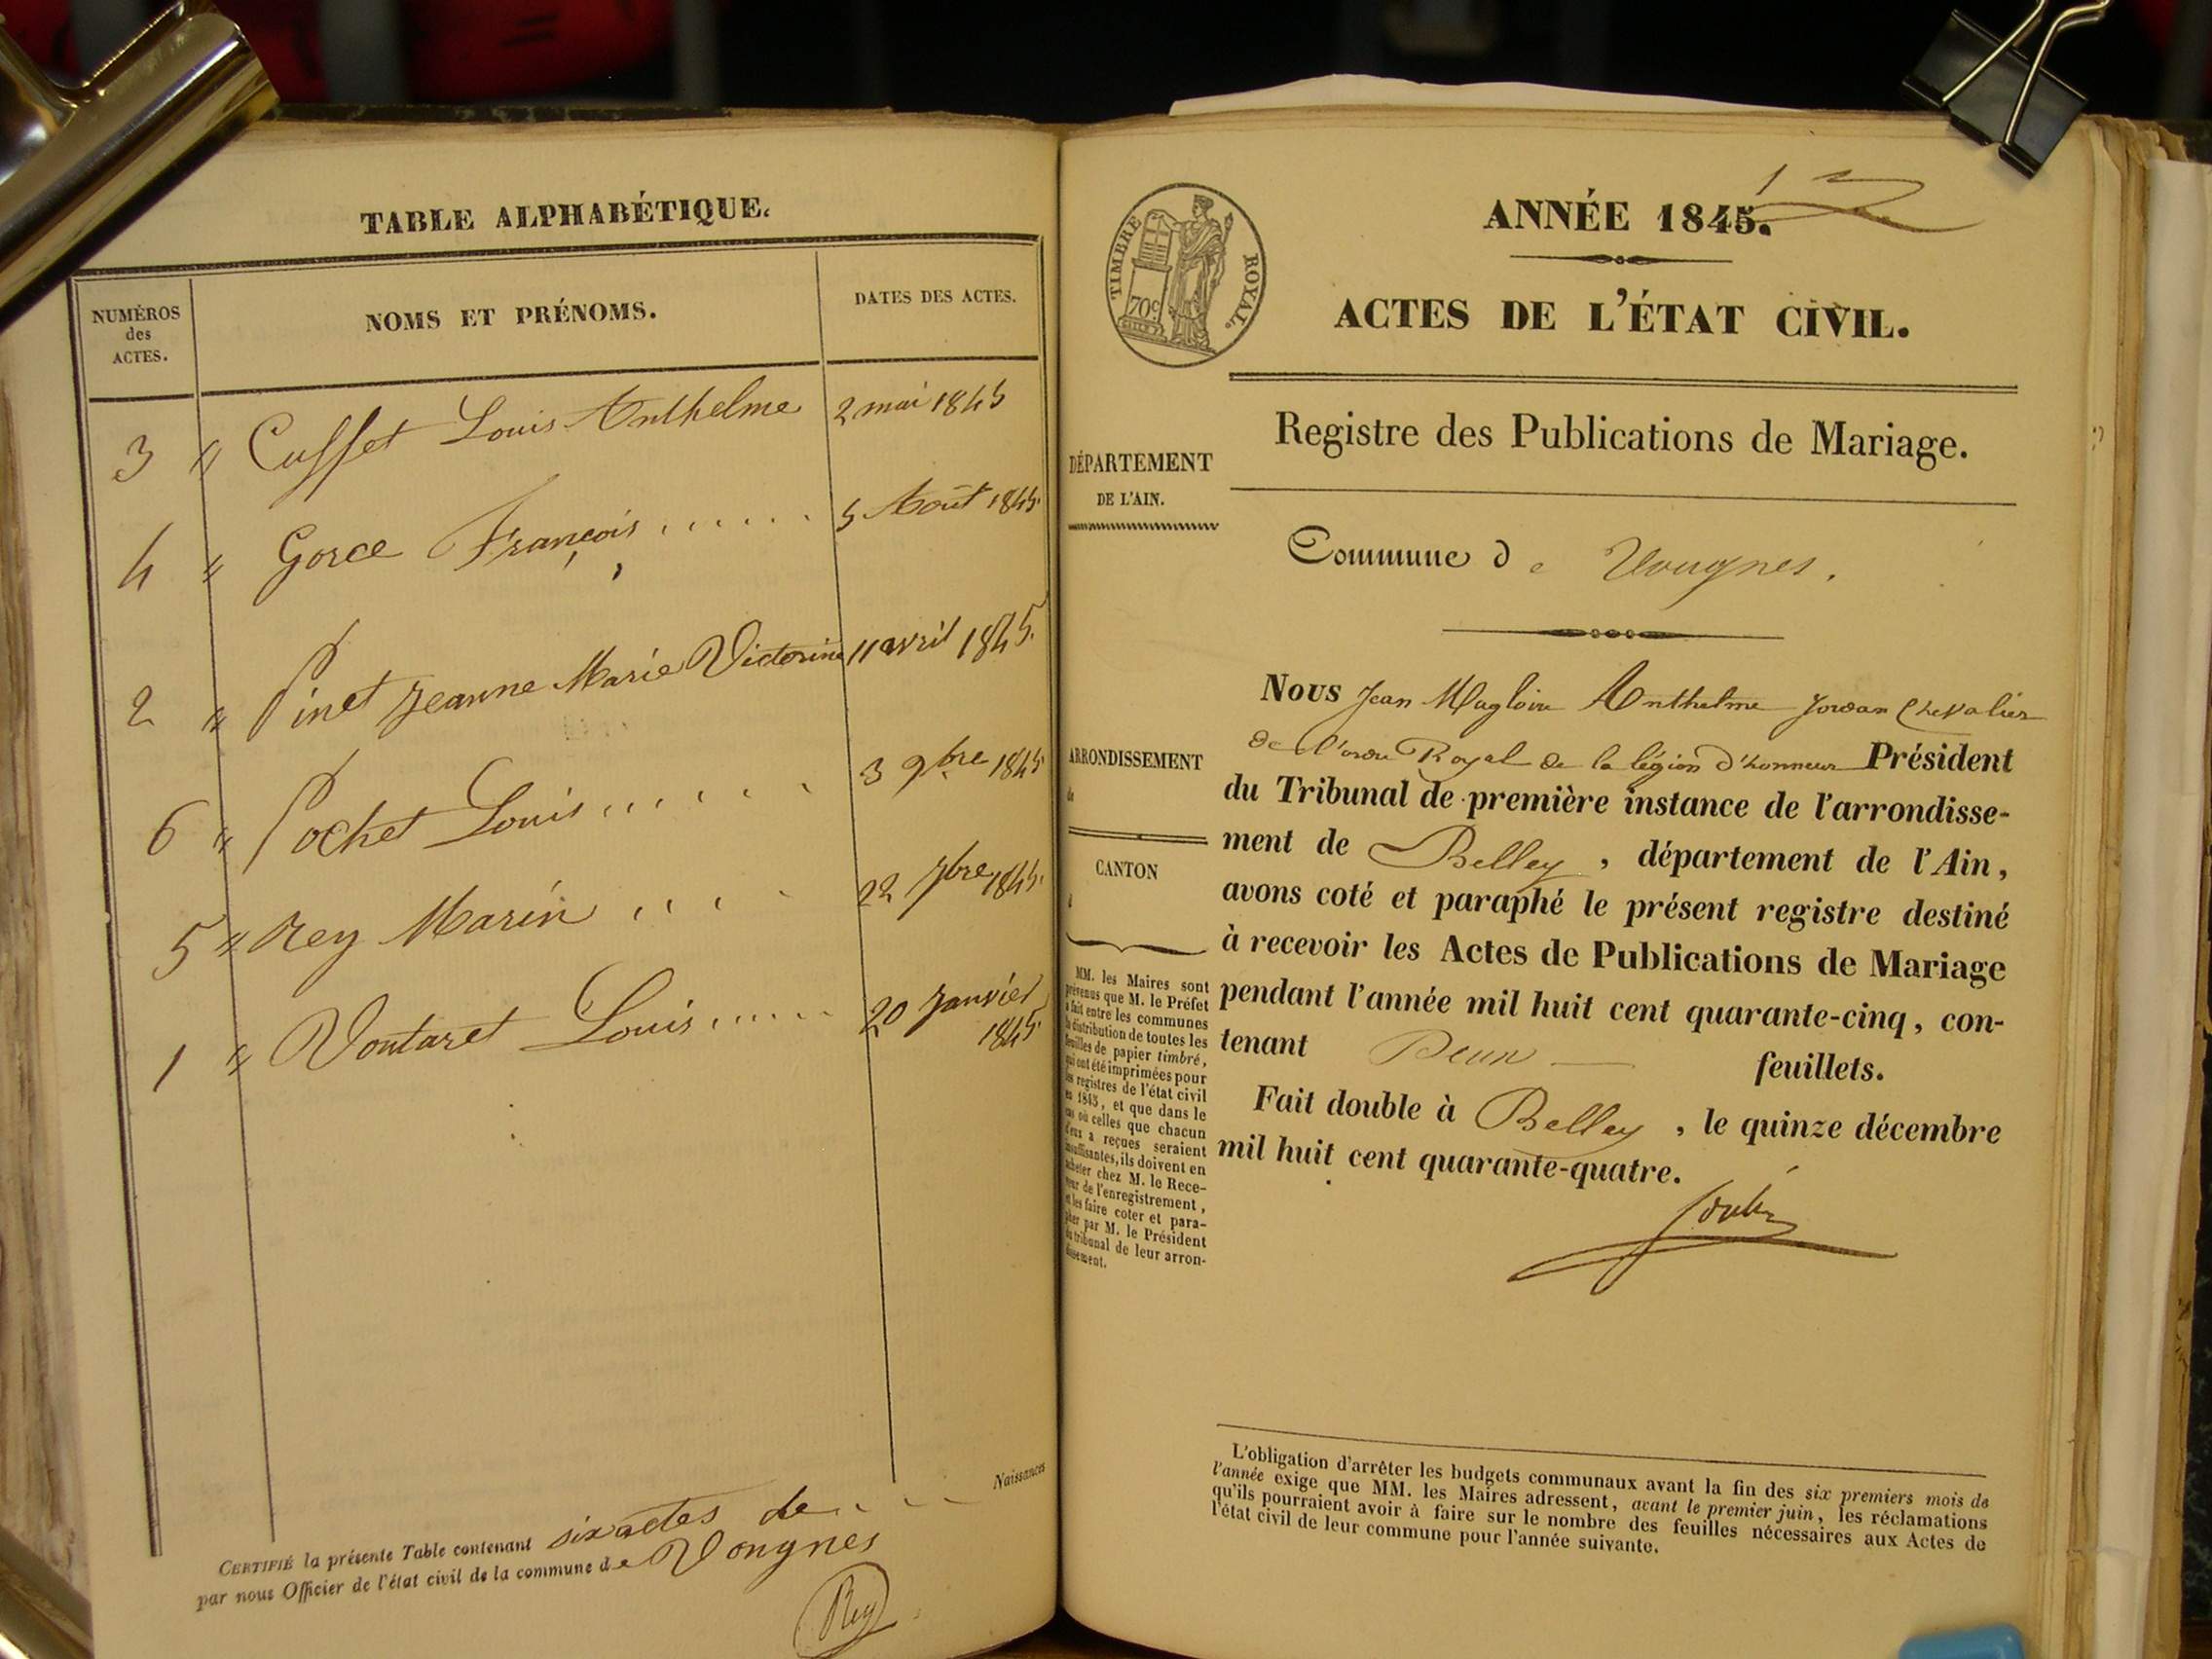 TABLE ALPHABÉTIQUE.
NUMÉROS
des
ACTES.
NOMS ET PRÉNOMS.
DATES DES ACTES.
3 " Cusset Louis Anthelme 2 mai 1845
4 " Gorce François ...... 5 Août 1845.
2 " Pinet Jeanne Marie Victorine 11 avril 1845.
6 " Pochet Louis ...... 3 9bre 1845
5 " Rey Marin .... 22 7bre 1845.
1 " Voutaret Louis ...... 20 Janvier
1845.
Naissances
CERTIFIÉ la présente Table contenant six actes de
par nous Officier de l'état civil de la commune de Vongnes
Rey
TIMBRE ROYAL.
70c
ANNÉE 1845.
1
ACTES DE L'ÉTAT CIVIL.
Registre des Publications de Mariage.
DÉPARTEMENT
DE L'AIN.
Commune de Vougnes.
Nous Jean Magloire Anthelme Jordan Chevalier
de l'ordre Royal de la légion d'honneur Président
du Tribunal de première instance de l'arrondisse-
ment de Belley, département de l'Ain,
avons coté et paraphé le présent registre destiné
à recevoir les Actes de Publications de Mariage
pendant l'année mil huit cent quarante-cinq, con-
tenant Deux feuillets.
Fait double à Belley, le quinze décembre
mil huit cent quarante-quatre.
ARRONDISSEMENT
de
CANTON
MM. les Maires sont
prévenus que M. le Préfet
a fait entre les communes
la distribution de toutes les
feuilles de papier timbré,
qui ont été imprimées pour
les registres de l'état civil
en 1845, et que dans le
cas où celles que chacun
d'eux a reçues seraient
insuffisantes, ils doivent en
acheter chez M. le Rece-
veur de l'enregistrement,
et les faire coter et para-
pher par M. le Président
du tribunal de leur arron-
dissement.
L'obligation d'arrêter les budgets communaux avant la fin des six premiers mois de
l'année exige que MM. les Maires adressent, avant le premier juin, les réclamations
qu'ils pourraient avoir à faire sur le nombre des feuilles nécessaires aux Actes de
l'état civil de leur commune pour l'année suivante.